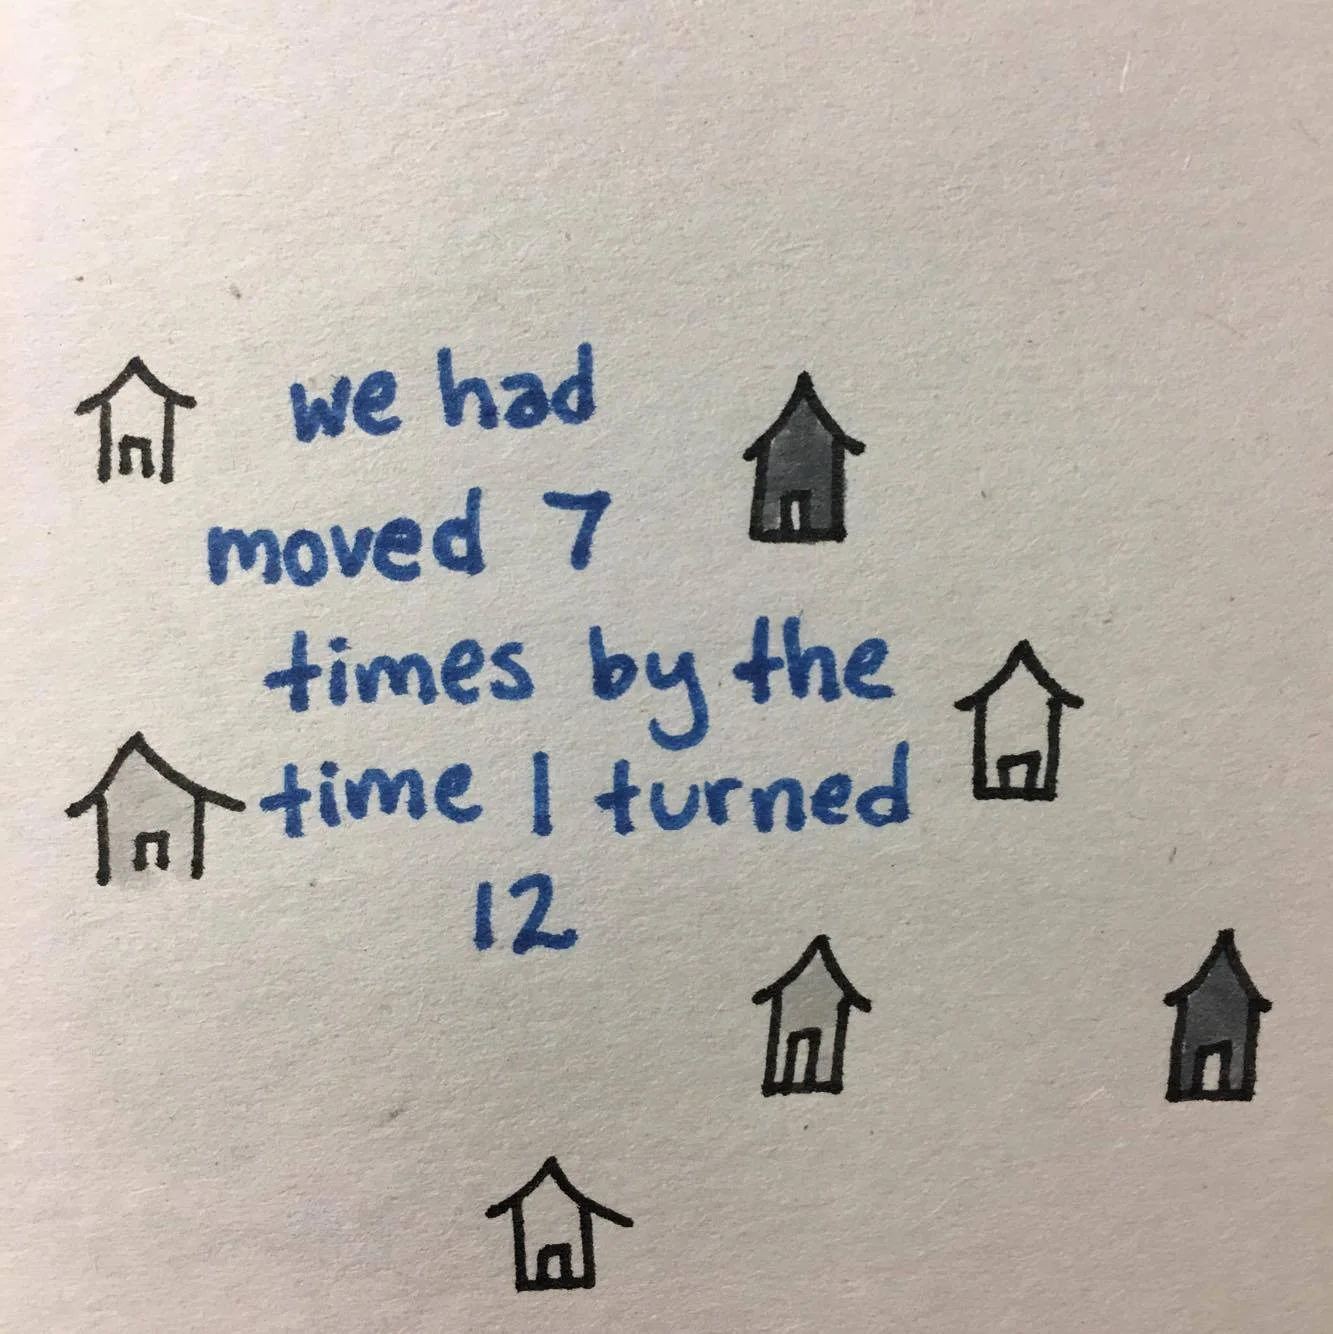 we had
moved 7
times by the
time I turned
12